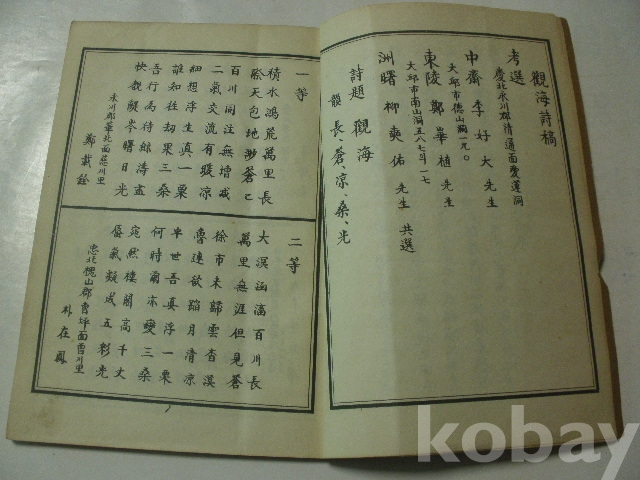 觀海詩稿
考選
慶北永川郡清通面愛蓮洞
中齋 李好大 先生
大邱市德山洞一九〇
東陵 鄭畢植 先生
大邱市南山洞五八七斗一七
洲曙 柳奭佑 先生 共選
詩題 觀海
韻 長、蒼、凉、桑、光
一等
積水鴻荒萬里長
殸天包地渺蒼々
百川同注無增減
二氣交流有暖凉
細想浮生真一粟
誰知往劫果三桑
吾行為待鯨濤盡
快覩扶岑曙日光
永川郡華北面慈川里
鄭載銓
二等
大溟涵滀百川長
萬里無涯但見蒼
徐市未歸雲杳漠
魯連欲蹈月清凉
半世吾真浮一粟
何時爾亦變三桑
宛然樓閣高千丈
蜃氣凝成五彩光
忠北槐山郡曾坪面曾川里
朴在鳳
kobay